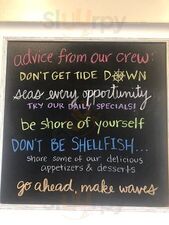 Sluurpy
advice from our crew:
DON'T GET TIDE DOWN
seas every opportunity
TRY OUR DAILY SPECIALS!
be shore of yourself
DON'T BE SHELLFISH...
share some of our delicious
appetizers & desserts
go ahead, make waves